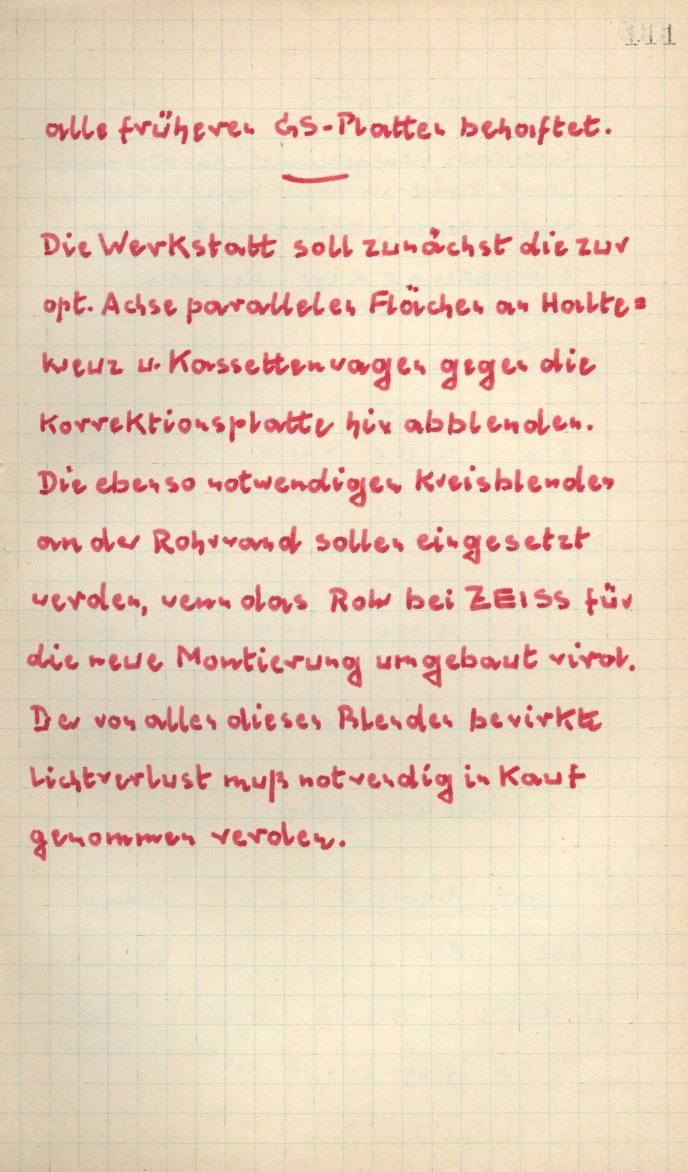 111
alle früheren GS-Platten behaftet.
Die Werkstatt soll zunächst die zur
opt. Achse parallelen Flächen an Halte=
kreuz u. Kassettenwagen gegen die
Korrektionsplatte hin abblenden.
Die ebenso notwendigen Kreisblenden
an der Rohrwand sollen eingesetzt
werden, wenn das Rohr bei ZEISS für
die neue Montierung umgebaut wird.
Der von allen diesen Blenden bewirkte
Lichtverlust muß notwendig in Kauf
genommen werden.